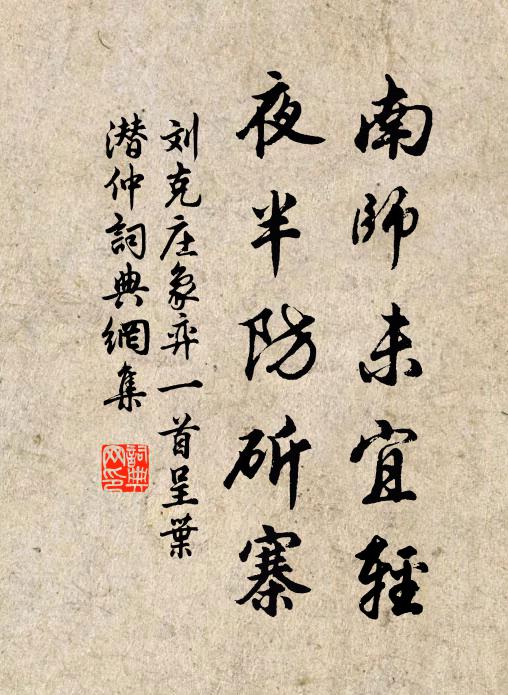 南師未宜輕
夜半防斫寨
刘克庄象弈一首呈葉
潜仲詞典網集
詞典网印